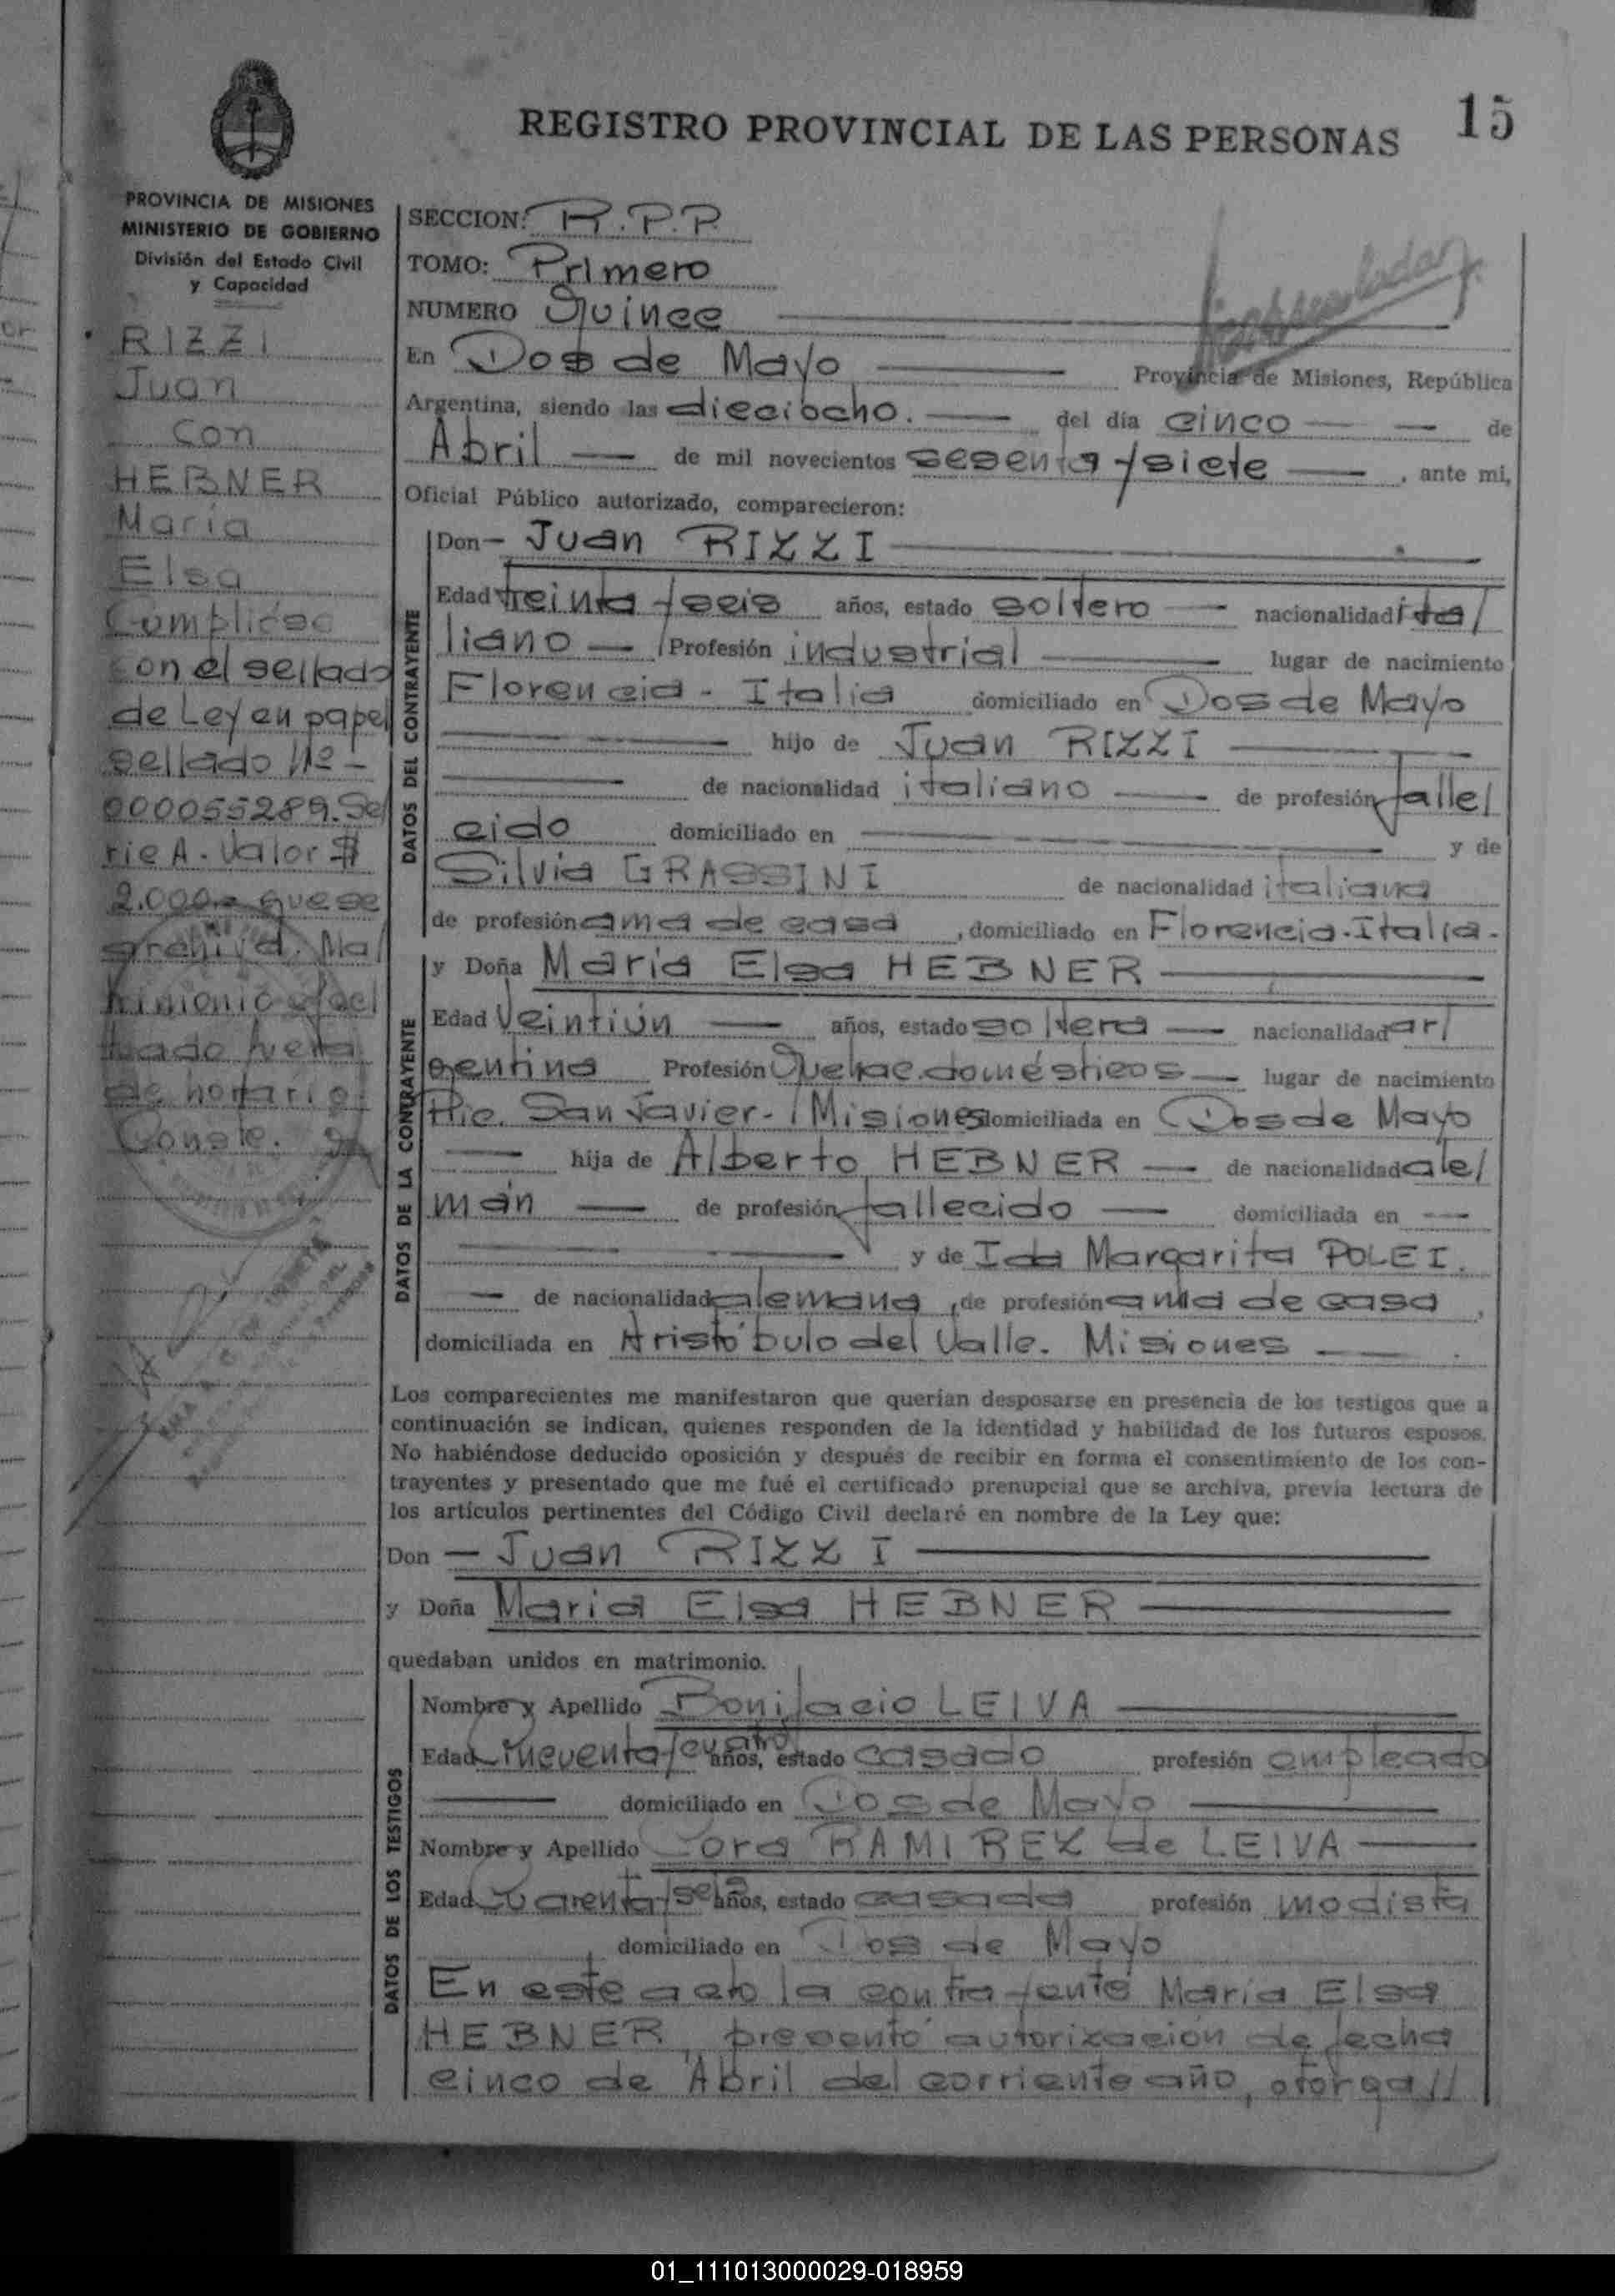 REGISTRO PROVINCIAL DE LAS PERSONAS
15
PROVINCIA DE MISIONES
MINISTERIO DE GOBIERNO
División del Estado Civil
y Capacidad
RIZZI
Juan
con
HEBNER
María
Elsa
Cumplióse
con el sellado
de Ley en papel
sellado Nº -
000055289. Se/
rie A. Valor $
2.000.- que se
archiva. Ma/
trimonio efec/
tuado fuera
de horario/
Conste.
SECCION: R.P.P.
TOMO: Primero
NUMERO Quince
En Dos de Mayo Provincia de Misiones, República
Argentina, siendo las dieciocho. del día cinco de
Abril de mil novecientos sesenta y siete , ante mi,
Oficial Público autorizado, comparecieron:
DATOS DEL CONTRAYENTE
Don - Juan RIZZI
Edad treinta y seis años, estado soltero nacionalidad ita/
liano Profesión industrial lugar de nacimiento
Florencia - Italia domiciliado en Dos de Mayo
hijo de Juan RIZZI
de nacionalidad italiano de profesión falle/
cido domiciliado en y de
Silvia GRASSINI de nacionalidad italiana
de profesión ama de casa , domiciliado en Florencia-Italia.
DATOS DE LA CONTRAYENTE
y Doña María Elsa HEBNER
Edad Veintiún años, estado soltera nacionalidad ar/
gentina Profesión Quehac. domésticos lugar de nacimiento
San Javier - Misiones domiciliada en Dos de Mayo
hija de Alberto HEBNER de nacionalidad ale/
mán de profesión fallecido domiciliada en
y de Ida Margarita POLEI.
de nacionalidad alemana , de profesión ama de casa ,
domiciliada en Aristóbulo del Valle. Misiones
Los comparecientes me manifestaron que querían desposarse en presencia de los testigos que a
continuación se indican, quienes responden de la identidad y habilidad de los futuros esposos.
No habiéndose deducido oposición y después de recibir en forma el consentimiento de los con-
trayentes y presentado que me fué el certificado prenupcial que se archiva, previa lectura de
los artículos pertinentes del Código Civil declaré en nombre de la Ley que:
Don - Juan RIZZI
y Doña María Elsa HEBNER
quedaban unidos en matrimonio.
DATOS DE LOS TESTIGOS
Nombre y Apellido Bonifacio LEIVA
Edad cincuenta y cuatro años, estado casado profesión empleado
domiciliado en Dos de Mayo
Nombre y Apellido Cora RAMIREZ de LEIVA
Edad Cuarenta y seis años, estado casada profesión modista
domiciliado en Dos de Mayo
En este acto la contrayente María Elsa
HEBNER, presentó autorización de fecha
cinco de Abril del corriente año, otorga//
01_111013000029-018959